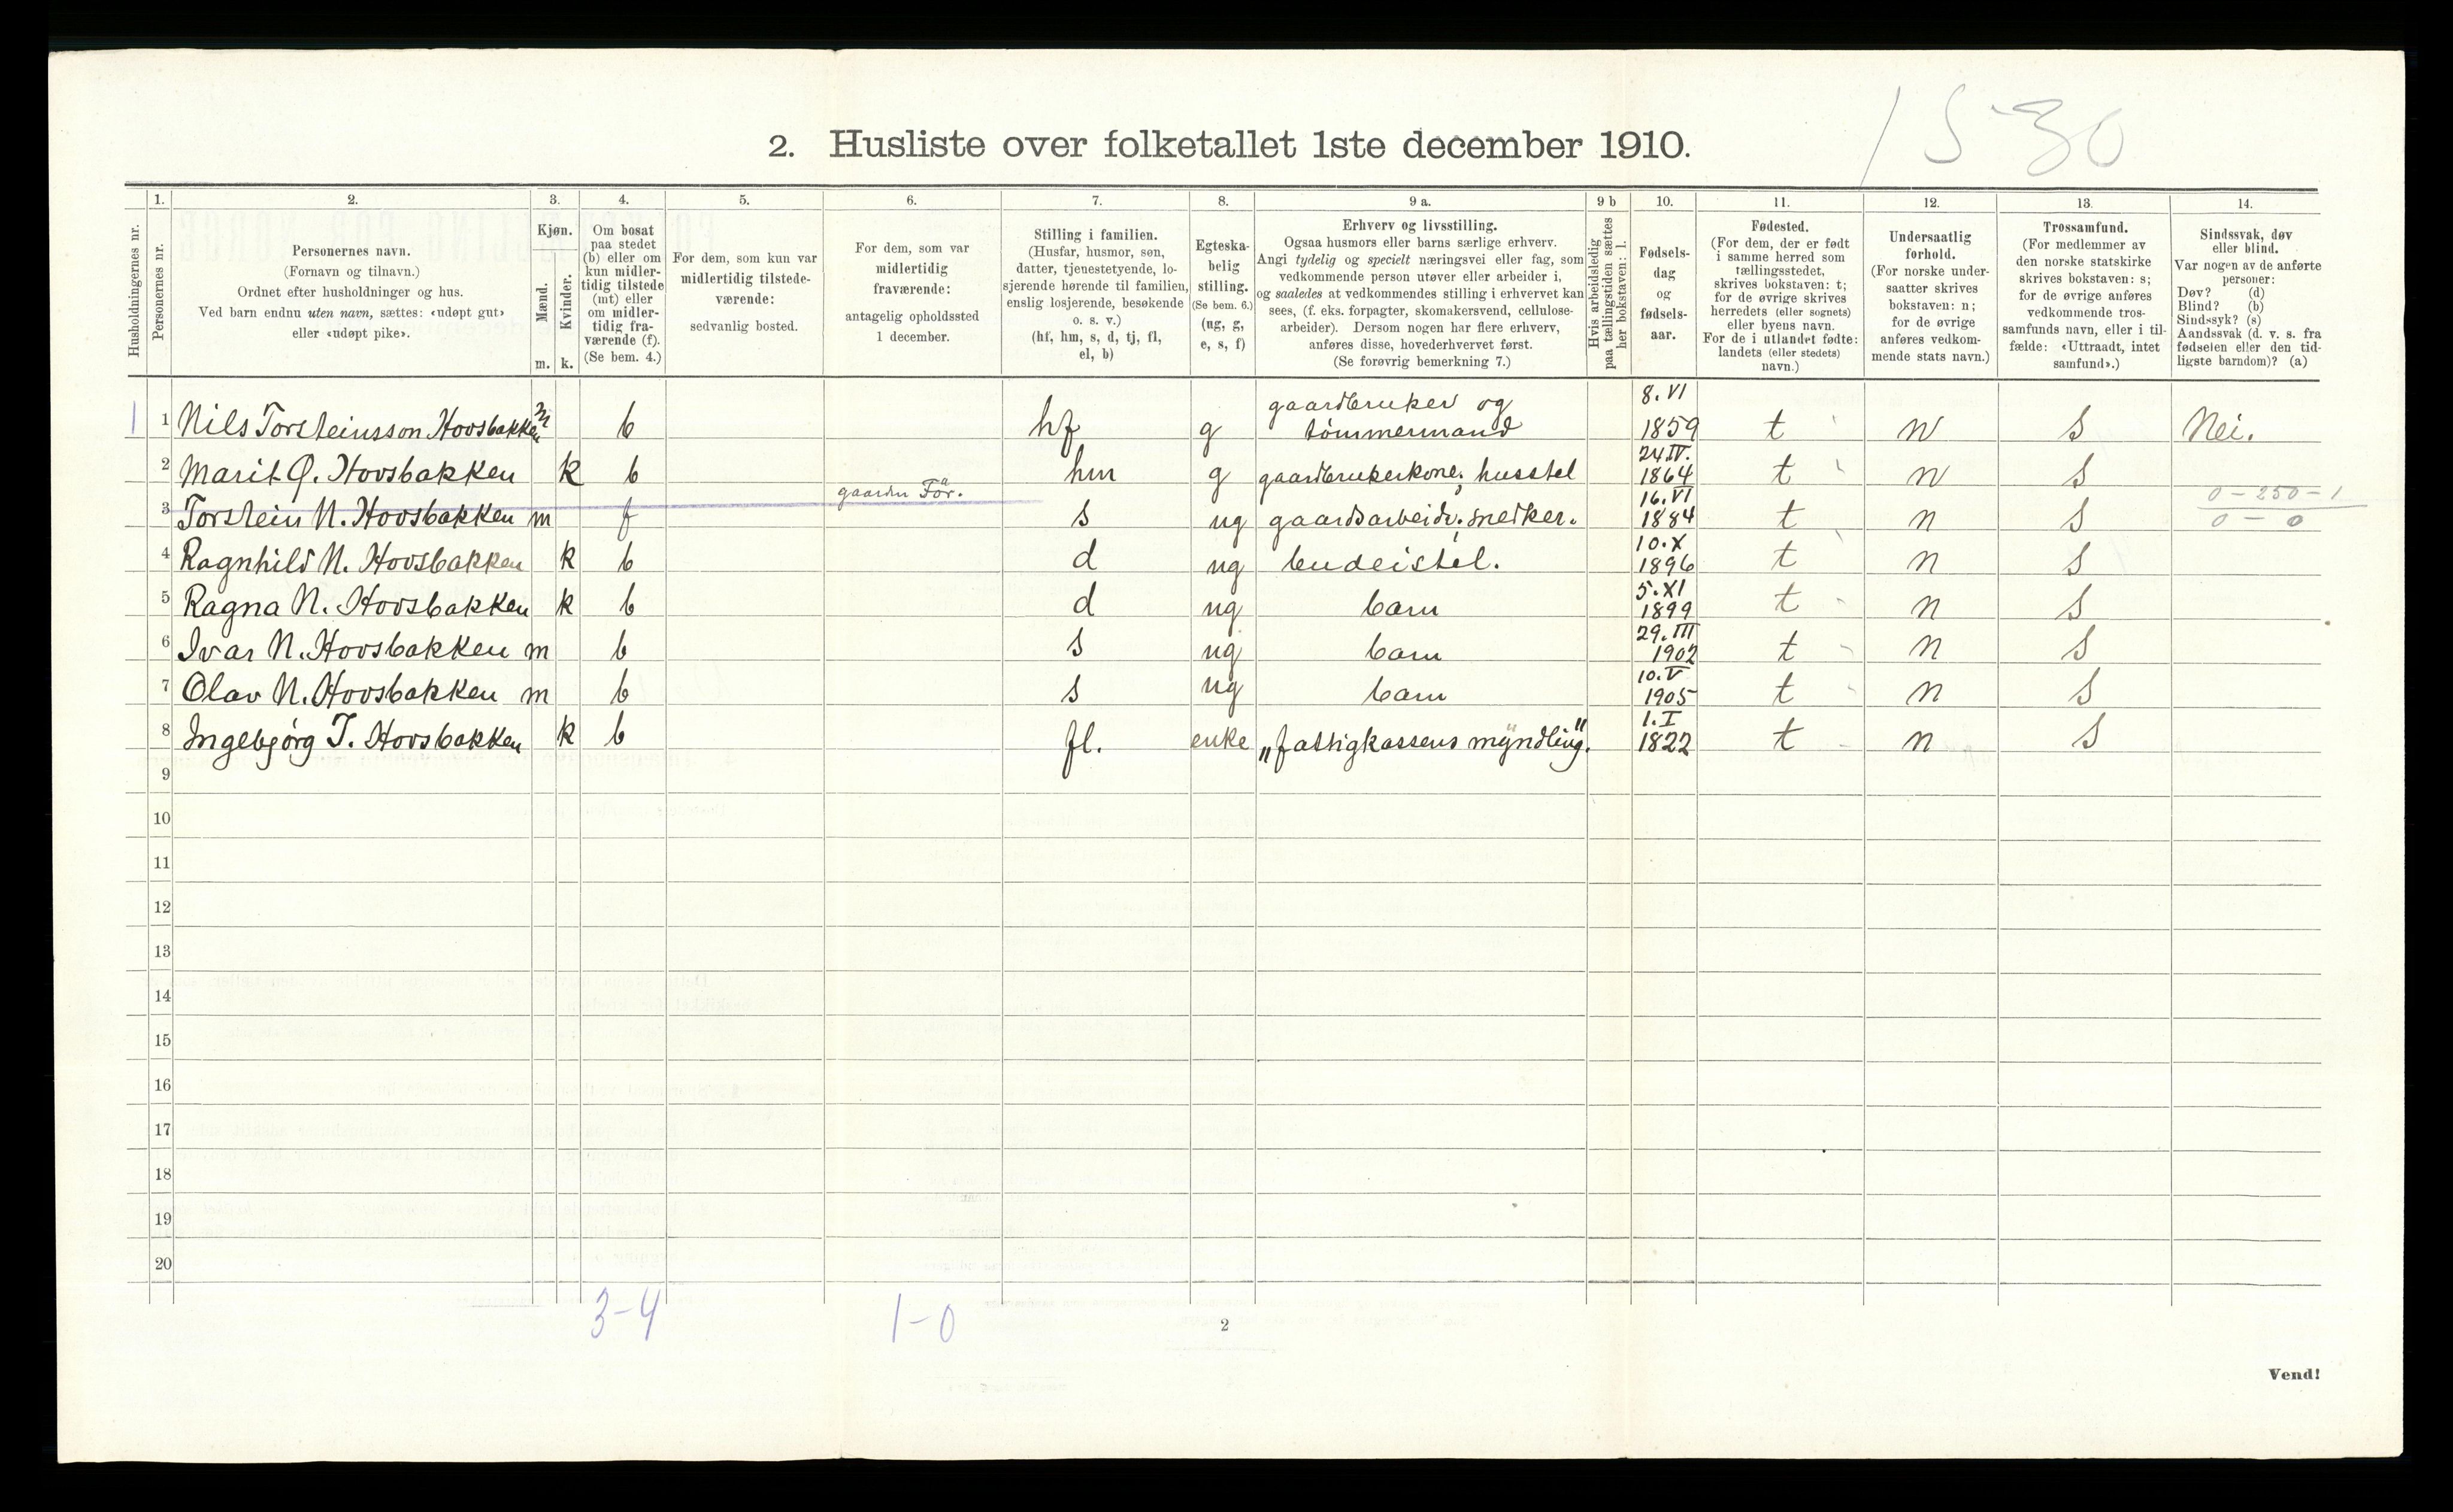 1530
2. Husliste over folketallet 1ste december 1910.
Husholdningernes nr.
1.
Personernes nr.
2.
Personernes navn.
(Fornavn og tilnavn.)
Ordnet efter husholdninger og hus.
Ved barn endnu uten navn, sættes: «udøpt gut»
eller «udøpt pike».
3.
Kjøn.
Mænd.
Kvinder.
m. k.
4.
Om bosat
paa stedet
(b) eller om
kun midler-
tidig tilstede
(mt) eller
om midler-
tidig fra-
værende (f).
(Se bem. 4.)
5.
For dem, som kun var
midlertidig tilstede-
værende:
sedvanlig bosted.
6.
For dem, som var
midlertidig
fraværende:
antagelig opholdssted
1 december.
7.
Stilling i familien.
(Husfar, husmor, søn,
datter, tjenestetyende, lo-
sjerende hørende til familien,
enslig losjerende, besøkende
o. s. v.)
(hf, hm, s, d, tj, fl,
el, b)
8.
Egteska-
belig
stilling.
(Se bem. 6.)
(ug, g,
e, s, f)
9 a.
Erhverv og livsstilling.
Ogsaa husmors eller barns særlige erhverv.
Angi tydelig og specielt næringsvei eller fag, som
vedkommende person utøver eller arbeider i,
og saaledes at vedkommendes stilling i erhvervet kan
sees, (f. eks. forpagter, skomakersvend, cellulose-
arbeider). Dersom nogen har flere erhverv,
anføres disse, hovederhvervet først.
(Se forøvrig bemerkning 7.)
9 b
Hvis arbeidsledig
paa tællingstiden sættes
her bokstaven: l.
10.
Fødsels-
dag
og
fødsels-
aar.
11.
Fødested.
(For dem, der er født
i samme herred som
tællingsstedet,
skrives bokstaven: t;
for de øvrige skrives
herredets (eller sognets)
eller byens navn.
For de i utlandet fødte:
landets (eller stedets)
navn.)
12.
Undersaatlig
forhold.
(For norske under-
saatter skrives
bokstaven: n;
for de øvrige
anføres vedkom-
mende stats navn.)
13.
Trossamfund.
(For medlemmer av
den norske statskirke
skrives bokstaven: s;
for de øvrige anføres
vedkommende tros-
samfunds navn, eller i til-
fælde: «Uttraadt, intet
samfund».)
14.
Sindssvak, døv
eller blind.
Var nogen av de anførte
personer:
Døv? (d)
Blind? (b)
Sindssyk? (s)
Aandssvak (d. v. s. fra
fødselen eller den tid-
ligste barndom)? (a)
1 1 Nils Torsteinsson Hovsbakken m b hf g gaardbruker og tömmermand 8.VI 1859 t n s Nei.
2 Marit O. Hovsbakken k b hm g gaardbrukerkone; husstel 24.IV. 1864 t n s
3 Torstein N. Hovsbakken m f gaarden För. s ug gaardsarbeidr; snedker. 16.VI 1884 t n s 0-250-1
0-0
4 Ragnhild N. Hovsbakken k b d ug budeistel. 10.X 1896 t n s
5 Ragna N. Hovsbakken k b d ug barn 5.XI 1899 t n s
6 Ivar N. Hovsbakken m b s ug barn 29.III 1902 t n s
7 Olav N. Hovsbakken m b s ug barn 10.V 1905 t n s
8 Ingebjörg T. Hovsbakken k b fl. enke „fattigkassens myndling". 1.I 1822 t n s
9
10
11
12
13
14
15
16
17
18
19
20
3-4 1-0
2
Vend!